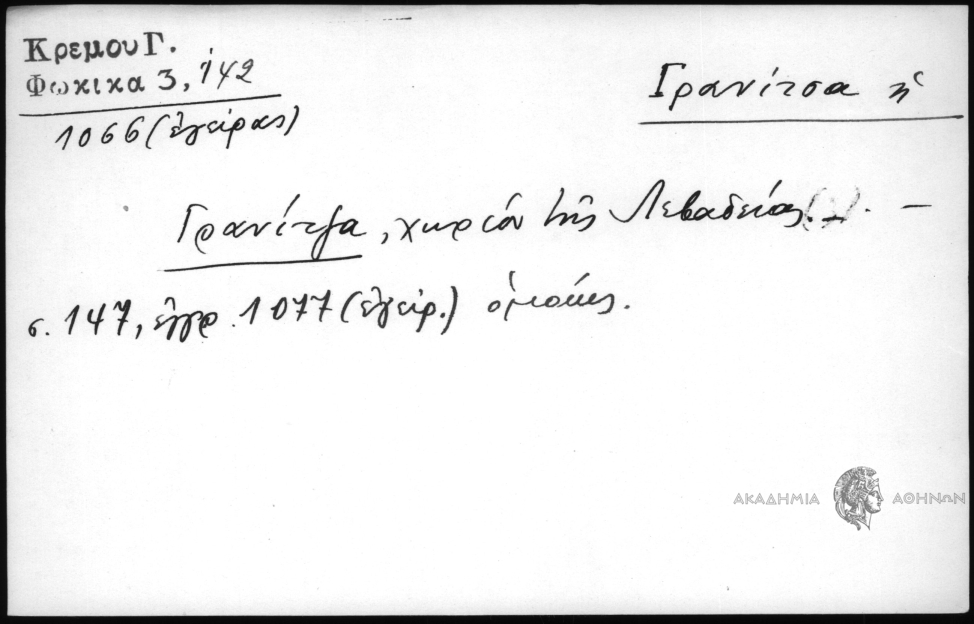 Κρεμου Γ.
Φωκικα 3, 142
1066 (ἐγείρας)
Γρανίτσα ἡ
Γρανίτζα, χωρίον τῆς Λεβαδείας. —
σ. 147, ἐγγρ. 1077 (ἐγειρ.) ὁμοίως.
ΑΚΑΔΗΜΙΑ ΑΘΗΝΩΝ